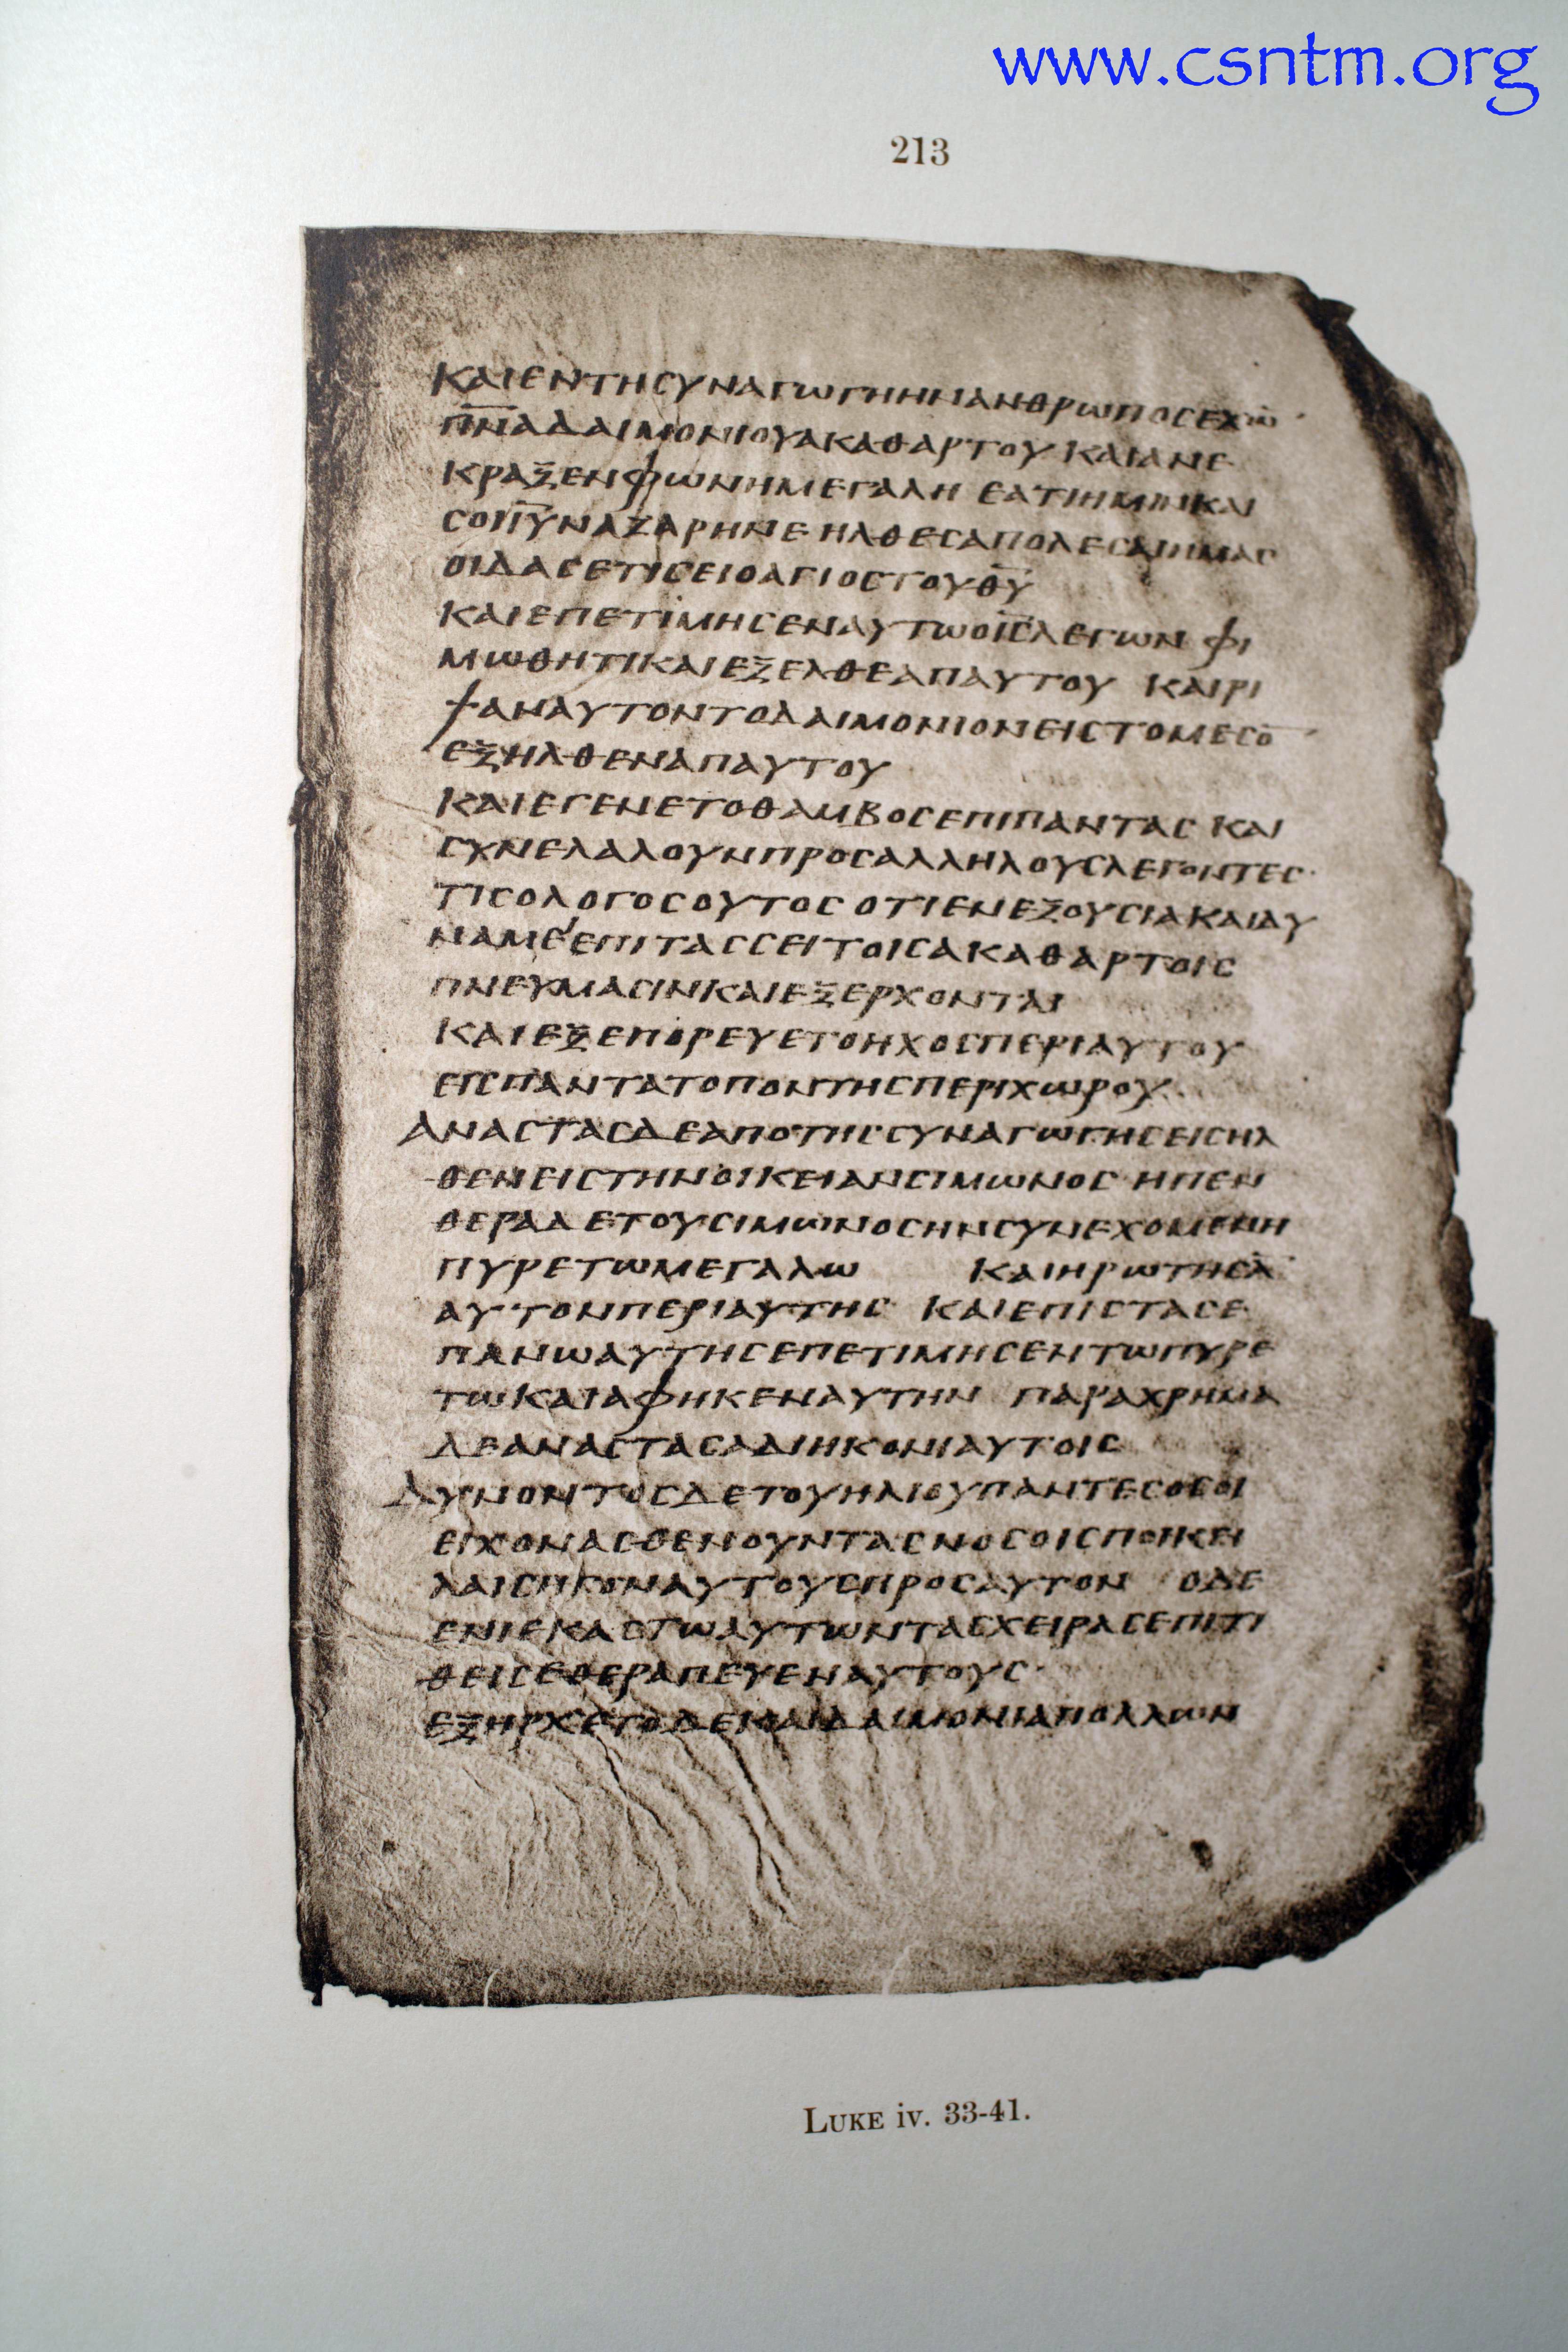 www.csntm.org
213
ΚΑΙΕΝΤΗСΥΝΑΓΩΓΗΗΝΑΝΘΡΩΠΟСΕΧΩ̅
Π̅Ν̅Α̅ΔΑΙΜΟΝΙΟΥΑΚΑΘΑΡΤΟΥ ΚΑΙΑΝΕ
ΚΡΑΞΕΝΦΩΝΗΜΕΓΑΛΗ ΕΑΤΙΗΜΙΝΚΑΙ
СΟΙΙ̅Υ̅ΝΑΖΑΡΗΝΕ ΗΛΘΕСΑΠΟΛΕСΑΙΗΜΑС
ΟΙΔΑСΕΤΙСΕΙΟΑΓΙΟСΤΟΥΘ̅Υ̅
ΚΑΙΕΠΕΤΙΜΗСΕΝΑΥΤΩΟΙ̅С̅ΛΕΓΩΝ ΦΙ
ΜΩΘΗΤΙΚΑΙΕΞΕΛΘΕΑΠΑΥΤΟΥ ΚΑΙΡΙ
ΨΑΝΑΥΤΟΝΤΟΔΑΙΜΟΝΙΟΝΕΙСΤΟΜΕСΟ̅
ΕΞΗΛΘΕΝΑΠΑΥΤΟΥ
ΚΑΙΕΓΕΝΕΤΟΘΑΜΒΟСΕΠΙΠΑΝΤΑС ΚΑΙ
СΥΝΕΛΑΛΟΥΝΠΡΟСΑΛΛΗΛΟΥСΛΕΓΟΝΤΕС
ΤΙСΟΛΟΓΟСΟΥΤΟС ΟΤΙΕΝΕΞΟΥСΙΑΚΑΙΔΥ
ΝΑΜΕ'ΕΠΙΤΑССΕΙΤΟΙСΑΚΑΘΑΡΤΟΙС
ΠΝΕΥΜΑСΙΝΚΑΙΕΞΕΡΧΟΝΤΑΙ
ΚΑΙΕΞΕΠΟΡΕΥΕΤΟΗΧΟСΠΕΡΙΑΥΤΟΥ
ΕΙСΠΑΝΤΑΤΟΠΟΝΤΗСΠΕΡΙΧΩΡΟΥ
ΑΝΑСΤΑСΔΕΑΠΟΤΗССΥΝΑΓΩΓΗСΕΙСΗΛ
ΘΕΝΕΙСΤΗΝΟΙΚΕΙΑΝСΙΜΩΝΟС ΗΠΕΝ
ΘΕΡΑΔΕΤΟΥСΙΜΩΝΟСΗΝСΥΝΕΧΟΜΕΝΗ
ΠΥΡΕΤΩΜΕΓΑΛΩ ΚΑΙΗΡΩΤΗСΑ̅
ΑΥΤΟΝΠΕΡΙΑΥΤΗС ΚΑΙΕΠΙСΤΑСΕ
ΠΑΝΩΑΥΤΗСΕΠΕΤΙΜΗСΕΝΤΩΠΥΡΕ
ΤΩΚΑΙΑΦΗΚΕΝΑΥΤΗΝ ΠΑΡΑΧΡΗΜΑ
ΔΕΑΝΑСΤΑСΑΔΙΗΚΟΝΙΑΥΤΟΙС
ΔΥΝΟΝΤΟСΔΕΤΟΥΗΛΙΟΥΠΑΝΤΕСΟСΟΙ
ΕΙΧΟΝΑСΘΕΝΟΥΝΤΑСΝΟСΟΙСΠΟΙΚΕΙ
ΛΑΙСΗΓΟΝΑΥΤΟΥСΠΡΟСΑΥΤΟΝ ΟΔΕ
ΕΝΙΕΚΑСΤΩΑΥΤΩΝΤΑСΧΕΙΡΑСΕΠΙΤΙ
ΘΕΙСΕΘΕΡΑΠΕΥΕΝΑΥΤΟΥС
ΕΞΗΡΧΕΤΟΔΕΚΑΙΔΑΙΜΟΝΙΑΠΟΛΛΩΝ
LUKE iv. 33-41.